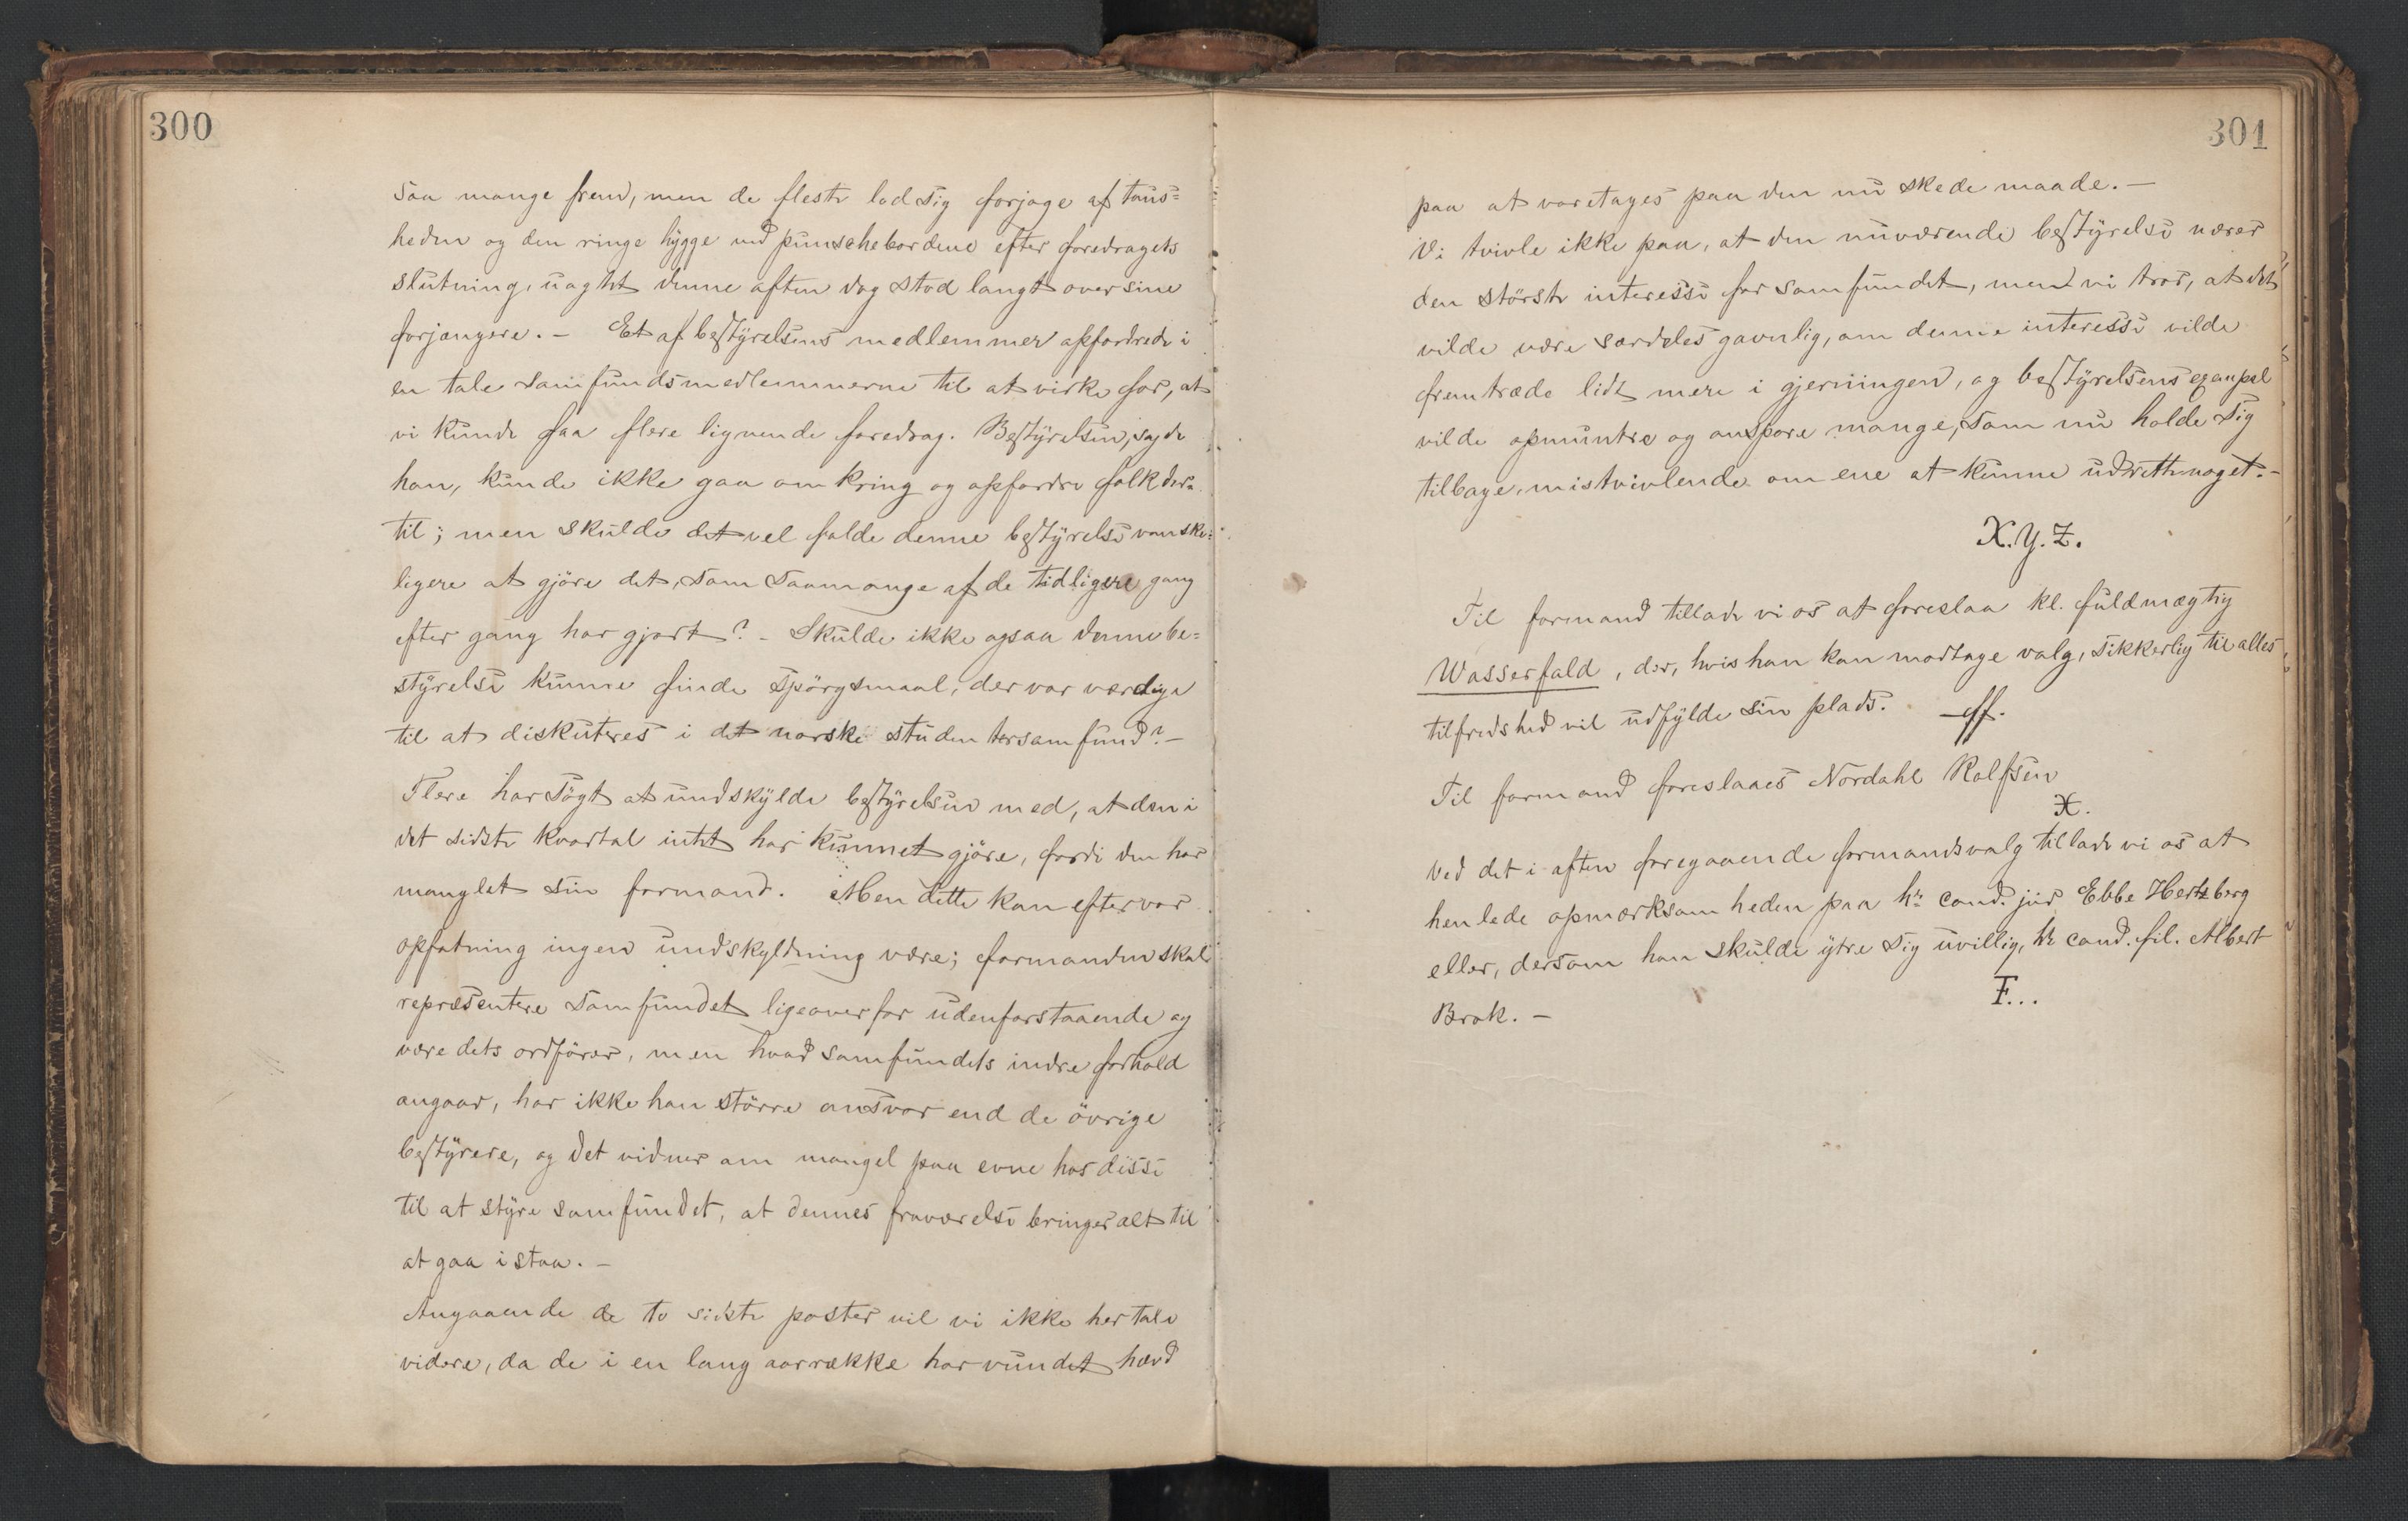 300
saa mange frem, men de fleste lod sig forjage af taus=
heden og den ringe hygge ved punschebordene efter foredragets
slutning, uagtet denne aften dog stod langt over sine
forjængere. – Et af bestyrelsens medlemmer opfordrede i
en tale samfundsmedlemmerne til at virke for, at
vi kunde faa flere lignende foredrag. Bestyrelsen, sagde
han, kunde ikke gaa omkring og opfordre folk der=
til; men skulde det vel falde denne bestyrelse vanske=
ligere at gjöre det, som saamange af de tidligere gang
efter gang har gjort? – Skulde ikke ogsaa denne be=
styrelse kunne finde spörgsmaal, der var værdige
til at diskuteres i det norske studentersamfund? –
Flere har sögt at undskylde bestyrelsen med, at den i
det sidste kvartal intet har kunnet gjöre, fordi den har
manglet sin formand. Men dette kan efter vor
opfatning ingen undskyldning være; formanden skal
repræsentere samfundet ligeoverfor udenforstaaende og
være dets ordförer, men hvad samfundets indre forhold
angaar, har ikke han större ansvar end de övrige
bestyrere, og det vidner om mangel paa evne hos disse
til at styre samfundet, at dennes fraværelse bringer alt til
at gaa istaa. –
Angaaende de to sidste poster vil vi ikke her tale
videre, da de i en lang aarrække har vundet hævd
301
paa at varetages paa den nu skede maade. –
Vi tvivle ikke paa, at den nuværende bestyrelse nærer
den störste interesse for samfundet, men vi tror, at det
vilde være særdeles gavnlig, om denne interesse vilde
fremtræde lidt mere i gjerningen, og bestyrelsens exempel
vilde opmuntre og anspore mange, som nu holde sig
tilbage, mistvivlende om ene at kunne udrette noget. –
X. Y. Z.
Til formand tillade vi os at foreslaa kl. fuldmægtig
Wasserfald, der, hvis han kan modtage valg, sikkerlig til alles
tilfredshed vil udfylde sin plads. –ff.
Til formand foreslaaes Nordahl Rolfsen
X.
Ved det i aften foregaaende formandsvalg tillade vi os at
henlede opmærksomheden paa hr. cand. jur Ebbe Hertzberg
eller, dersom han skulde ytre sig uvillig, hr. cand. fil. Albert
Brak. –
F...